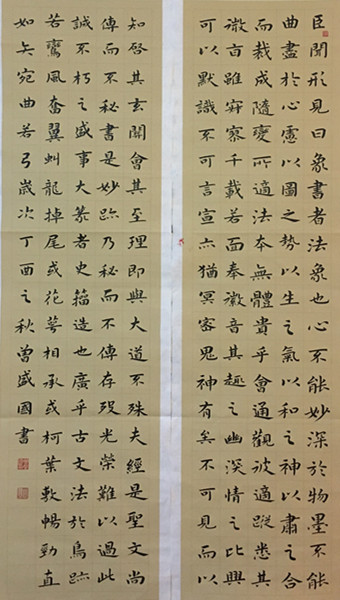 臣聞形見曰象書者法象也心不能妙深於物墨不能
曲盡於心慮以圖之勢以生之氣以和之神以肅之合
而裁成隨變所適法本無體貴乎會通觀彼適蹤悉其
微旨雖寂寥千載若面奉徽音其趣之幽深情之比興
可以默識不可言宣亦猶冥密鬼神有矣不可見而以
知啓其玄關會其至理即與大道不殊夫經是聖文尚
傳而不秘書是妙跡乃秘而不傳存歿光榮難以過此
誠不朽之盛事大篆者史籀造也廣乎古文法於鳥跡
若鸞鳳奮翼虯龍掉尾或花萼相承或柯葉敷暢勁直
如矢宛曲若弓歲次丁酉之秋曾盛國書